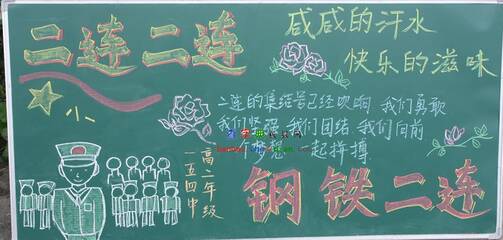 二连二连
咸咸的汗水
快乐的滋味
小
二连的集结号已经吹响 我们勇敢
我们坚强 我们团结 我们向前
梦想 一起拼搏
一五四中
高二年级
钢铁二连